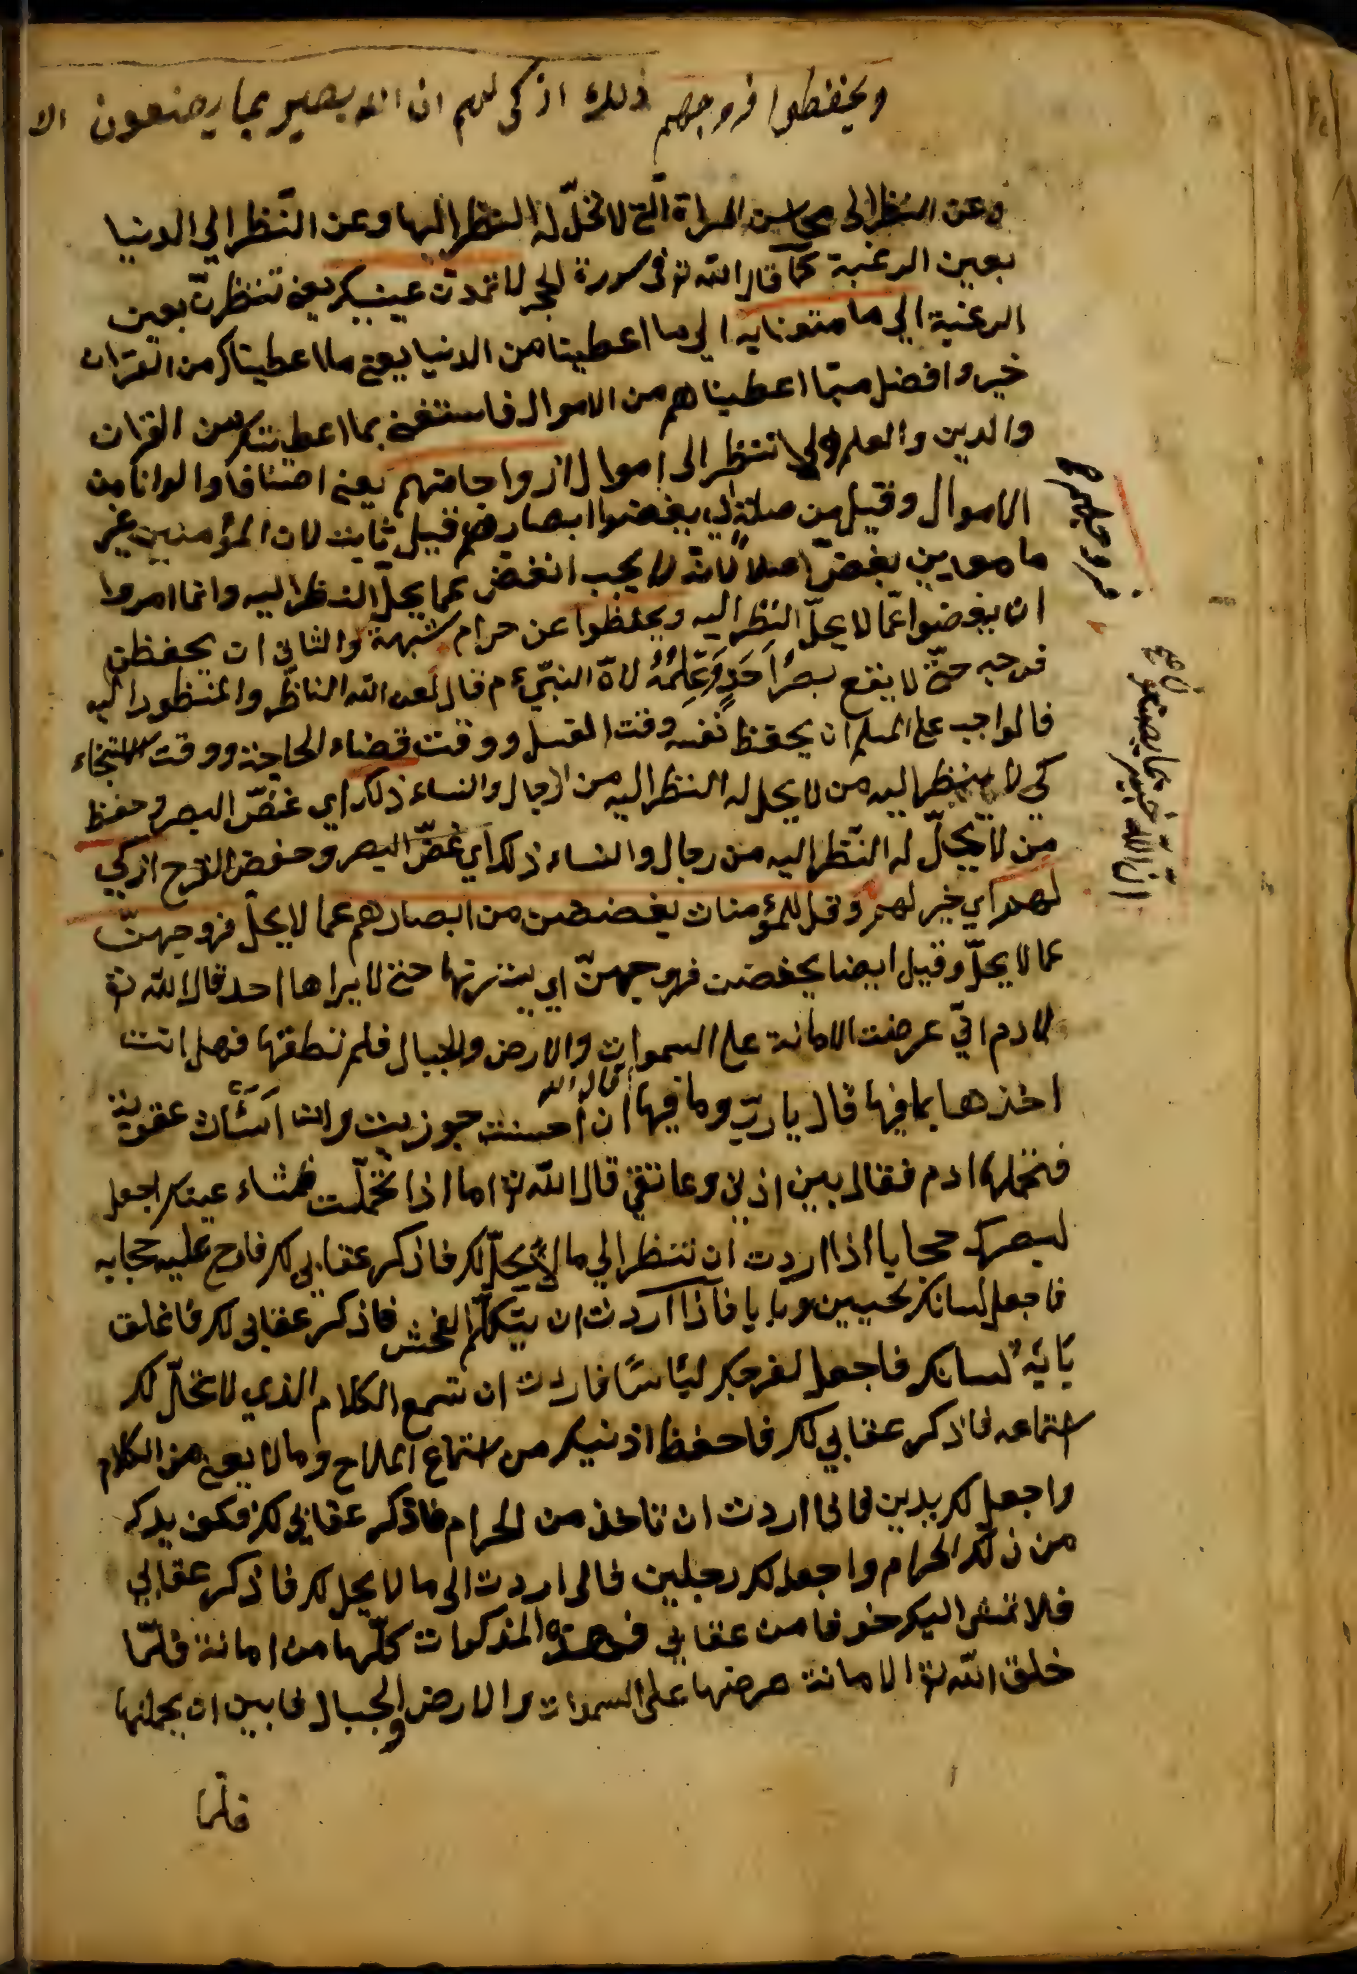 ويحفظوا فروجهم ذلك ازكى لهم ان الله بصير بما يصنعون الا
وعن النظر الى محاسن المراة التي لا تحلّ له النظر اليها وعن النّظر الي الدنيا
بعين الرغبة كما قال الله تع في سورة الحجر لا تمدّن عينيك يعني تنظرنّ بعين
الرغبة الي ما متعنا به الي ما اعطينا من الدنيا يعني ما اعطيناك من القرآن
خير وافضل ممّا اعطيناهم من الاموال فاستغني بما اعطيتك من القران
والدين والعلم ولا تنظر الى اموال ازواجا منهم يعني اصنافا والوانا من
الاموال وقيل من صلة اي يغضوا ابصارهم قيل ثابت لان المؤمنين غير
مامورين بغضّ اصلا لانّه لا يجب الغضّ عما يحلّ النظر اليه وانما امروا
ان يغضوا عمّا لا يحلّ النظر اليه ويحفظوا عن حرام شبهة والثاني ان يحفظن
فرجه حتّى لا يقع بصر احد وعلمه لانّ النبيّ م قال لعن الله الناظر والمنظور اليه
فالواجب على المسلم ان يحفظ نفسه وقت الغسل ووقت قضاء الحاجة ووقت الاستنجاء
كي لا ينظر اليه من لا يحل له النظر اليه من الرجال والنساء ذلك اي غضّ البصر وحفظ
من لا يحلّ له النّظر اليه من رجال والنساء ذلك اي غضّ البصر وحفض الفرج ازكي
لهم اي خير لهم وقل للمؤمنات يغضضن من ابصارهم عما لا يحلّ فروجهنّ
عما لا يحلّ وقيل ايضا يحفضن فروجهنّ اي يسترنها حتى لا يراها احد قال الله تع
لادم انّي عرضت الامانة على السموات والارض والجبال فلم تطقها فهل انت
اخذها بما فيها قال يا ربّ وما فيها قال الله ان احسنت جوزيت وان اسأت عقوبة
فتحملها ادم فقال بين اذني وعاتقي قال الله تع اما اذا تحمّلت عينك اجعل
لبصرك حجابا اذا اردت ان تنظر الي ما لا يحلّ لك فاذكر عقابي لك فارح عليه حجابه
فاجعل لسانك لحيين وبابا فاذا اردت ان يتكلّم الفحش فاذكر عقابي لك فاغلق
بابه لسانك فاجعل لفرجك لباسا فاردت ان تسمع الكلام الذي لا تحلّ لك
استماعه فاذكر عقابي لك فاحفظ اذنيك من استماع الملاح وما لا يعني من الكلام
واجعل لك يدين فاذا اردت ان تاخذ من الحرام فاذكر عقابي لك فكف يدك
من ذلك الحرام واجعل لك رجلين فالى اردت الى ما لا يحل لك فاذكر عقابي
فلا تمش اليك خوفا من عقابي فهذه المذكورات كلّها من امانة فلمّا
خلق الله تع الامانة عرضها على السموات والارض والجبال فابين ان يحملنها
فلما
فروجهم
ان الله خبير بما يصنعون